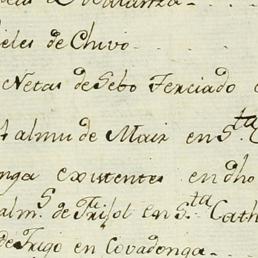 ieles de Chivo.
Netas de Sebo Ferciado
almu de Maiz en Sta
nga existentes en dho
alms de Frisol en Sta Cath
de Trigo en Covadonga